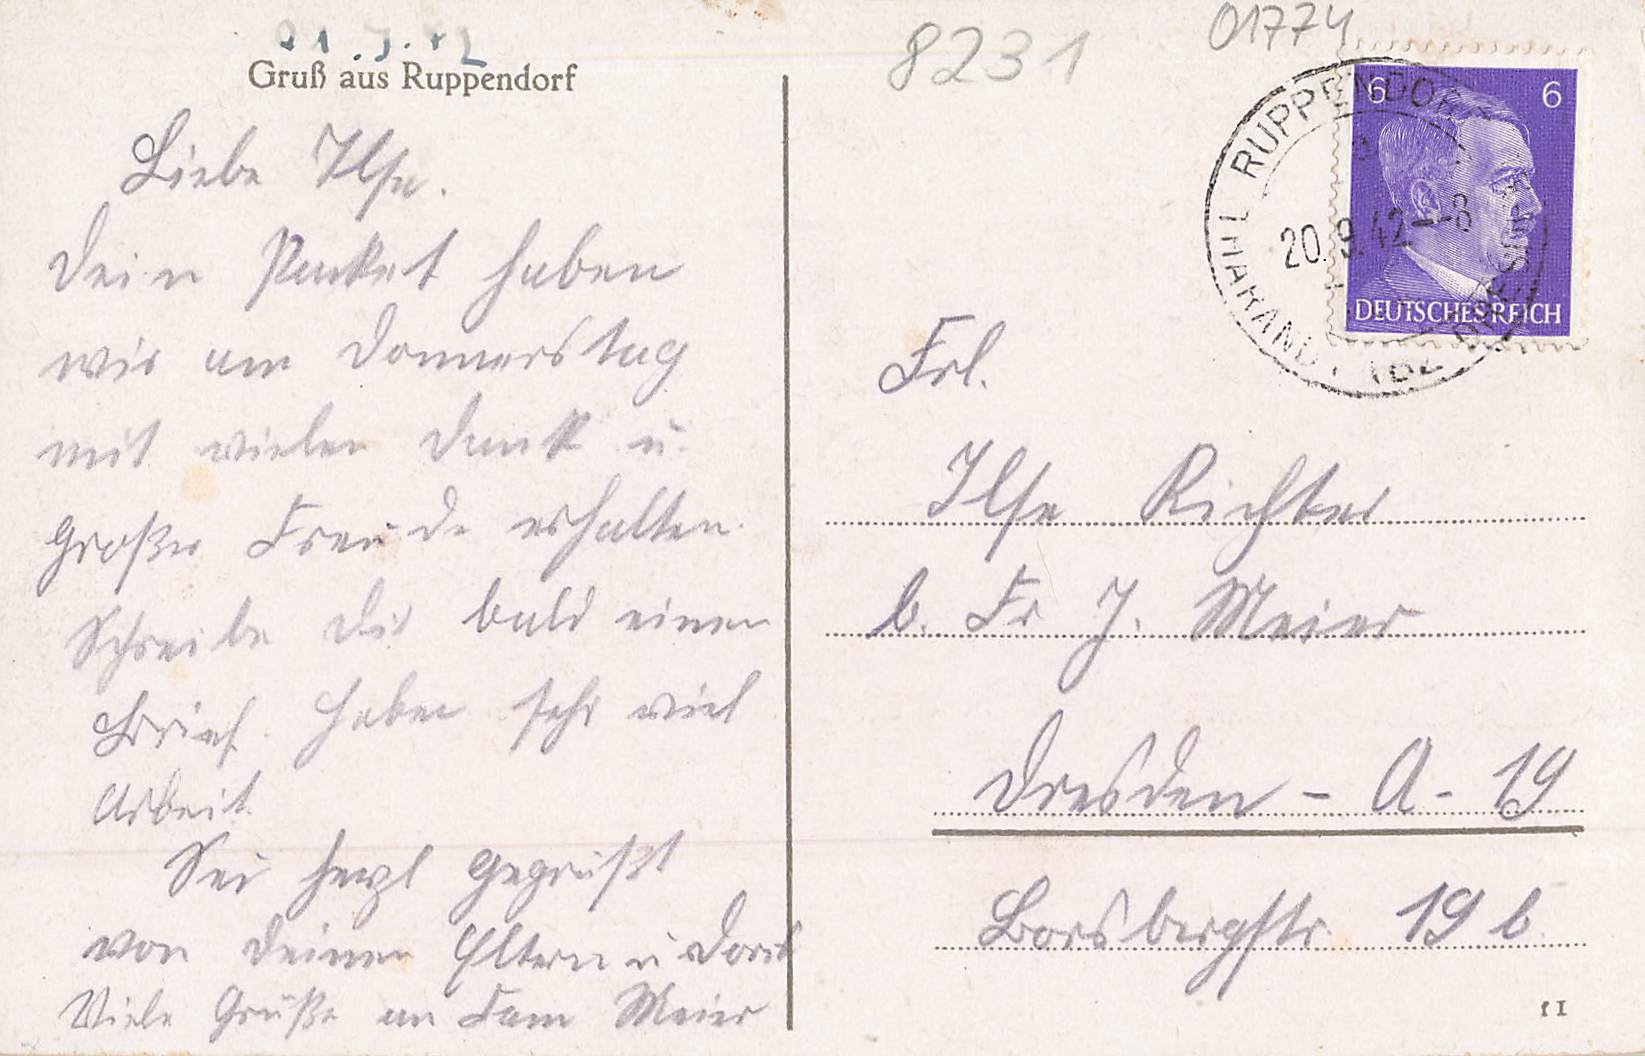 Gruß aus Ruppendorf
Liebe Ilse.
Dein Packet haben
wir am Donnerstag
mit vielen Dank u.
großer Freude erhalten.
Schreibe Dir bald einen
Brief. Haben sehr viel
Arbeit.
Sei herzl gegrüßt
von Deinen Eltern u
Viele Grüße an Fam Meier
8231
01774
6 6
DEUTSCHES REICH
RUPPENDORF
20.9.42--8
Frl.
Ilse Richter
b. Fr J. Meier
Dresden - A - 19
Borsbergstr. 19 b